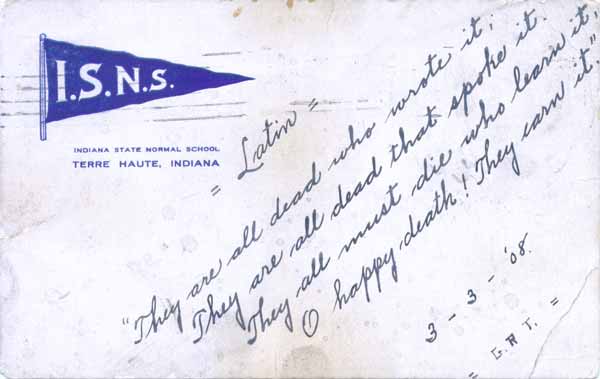 I.S.N.S.
INDIANA STATE NORMAL SCHOOL
TERRE HAUTE, INDIANA
= Latin =
"They are all dead who wrote it;
They are all dead that spoke it.
They all must die who learn it,
O happy death! They earn it."
3-3-'08.
= G.R.T. =